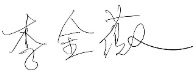 李金薇